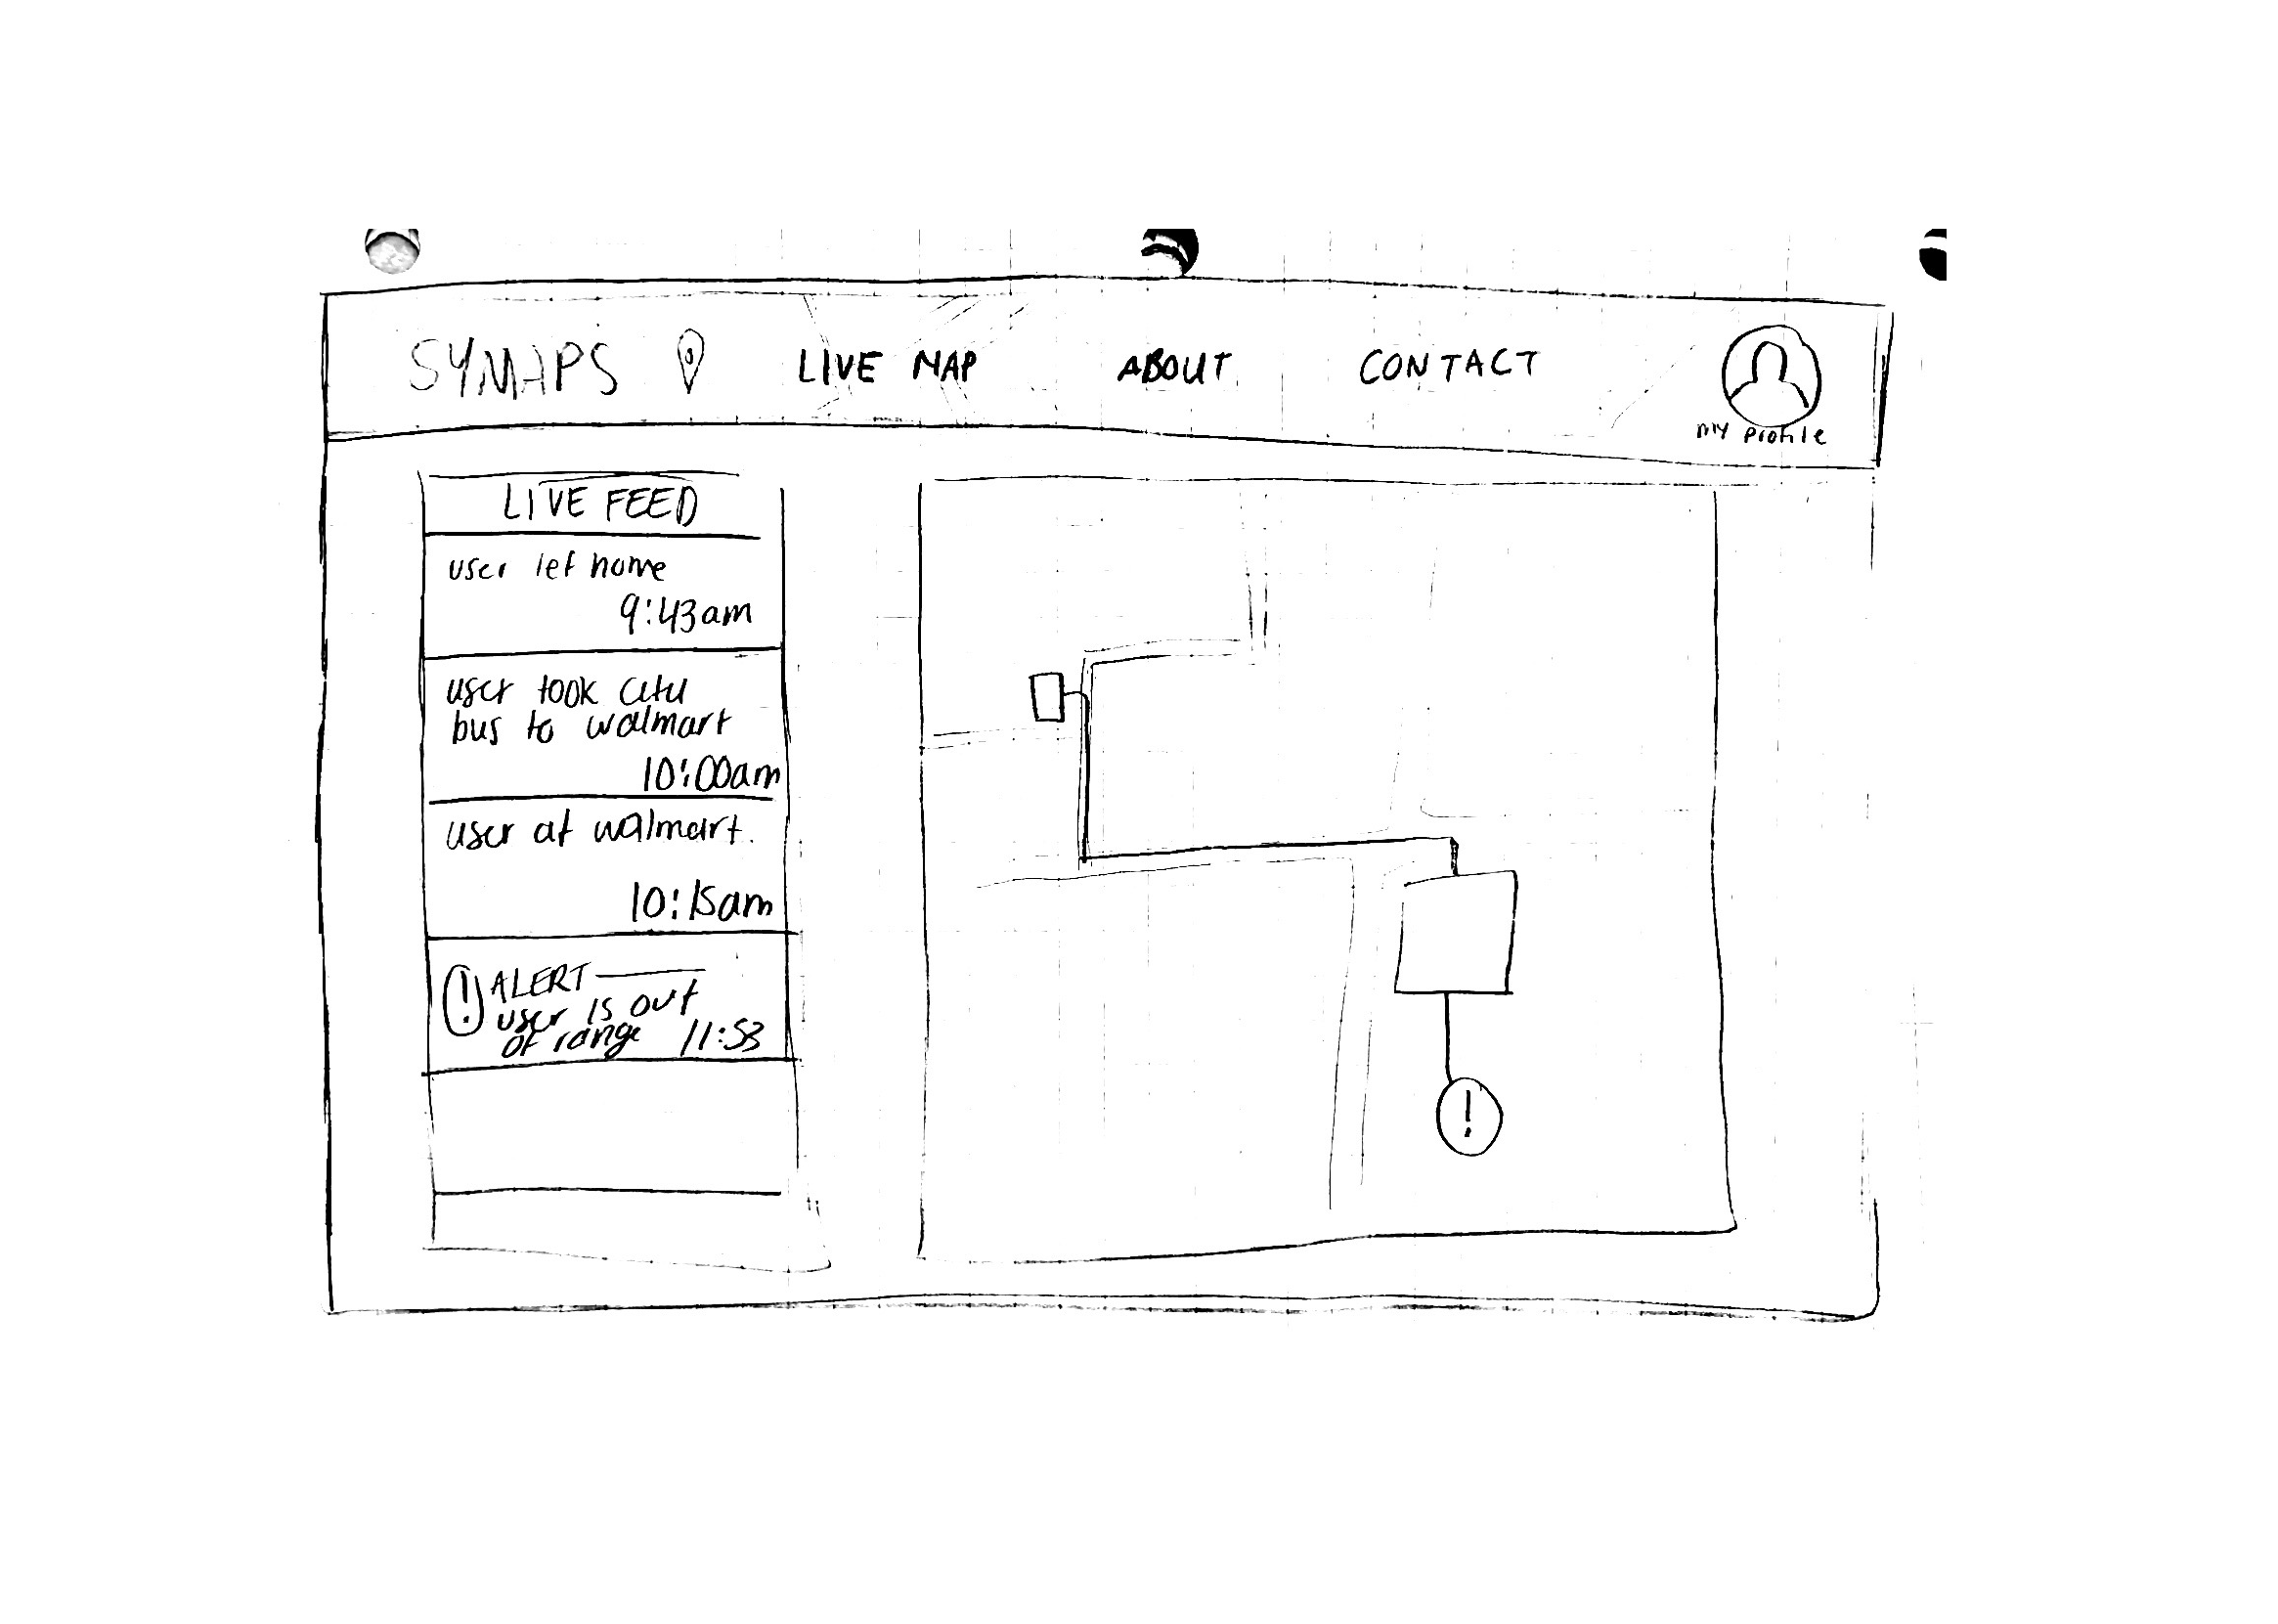 SYMAPS LIVE MAP ABOUT CONTACT
my profile
LIVE FEED
user lef home
9:43am
user took
bus to walmart
10:00am
user at walmart.
10:15am
! ALERT
user is out
of range 11:53
!